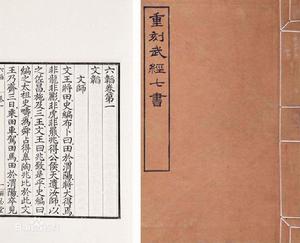 重刻武經七書
六韜卷第一
文韜
文師
文王將田史編布卜曰田於渭陽將大得焉
非龍非彲非虎非羆兆得公侯天遺汝師以
之佐昌施及三王文王曰兆致是乎史編曰
編之太祖史疇為舜占得皋陶兆比於此文
王乃齋三日乘田車駕田馬田於渭陽卒見